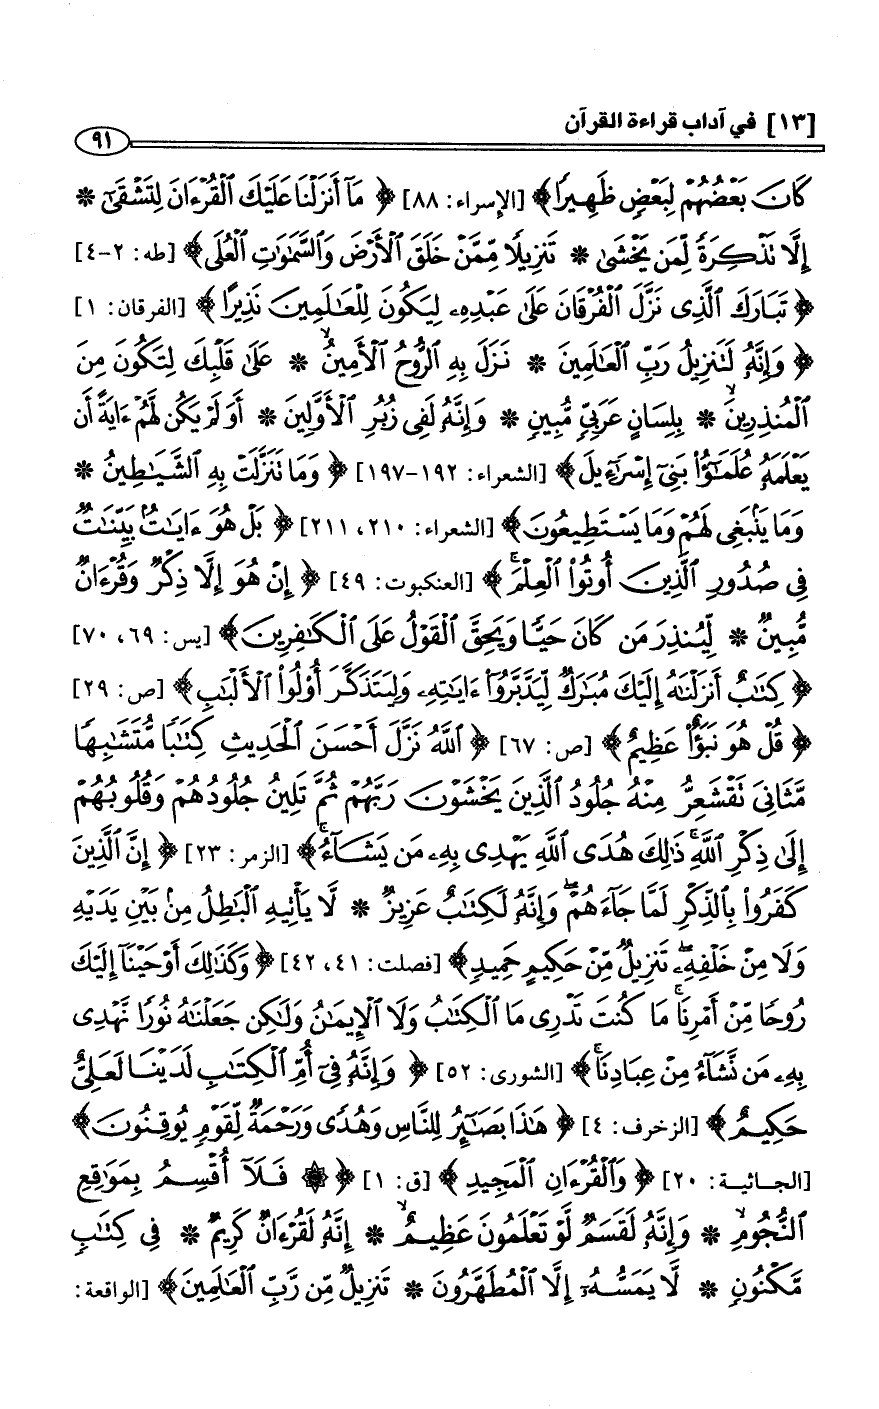 [١٣] في آداب قراءة القرآن
٩١
كَانَ بَعْضُهُمْ لِبَعْضٍ ظَهِيرًا﴾ [الإسراء: ٨٨] ﴿ مَآ أَنزَلْنَا عَلَيْكَ ٱلْقُرْءَانَ لِتَشْقَىٰٓ *
إِلَّا تَذْكِرَةً لِّمَن يَخْشَىٰ * تَنزِيلًا مِّمَّنْ خَلَقَ ٱلْأَرْضَ وَٱلسَّمَٰوَٰتِ ٱلْعُلَى﴾ [طه: ٢-٤]
﴿ تَبَارَكَ ٱلَّذِى نَزَّلَ ٱلْفُرْقَانَ عَلَىٰ عَبْدِهِۦ لِيَكُونَ لِلْعَٰلَمِينَ نَذِيرًا﴾ [الفرقان: ١]
﴿ وَإِنَّهُۥ لَتَنزِيلُ رَبِّ ٱلْعَٰلَمِينَ * نَزَلَ بِهِ ٱلرُّوحُ ٱلْأَمِينُ * عَلَىٰ قَلْبِكَ لِتَكُونَ مِنَ
ٱلْمُنذِرِينَ * بِلِسَانٍ عَرَبِىٍّ مُّبِينٍ * وَإِنَّهُۥ لَفِى زُبُرِ ٱلْأَوَّلِينَ * أَوَلَمْ يَكُن لَّهُمْ ءَايَةً أَن
يَعْلَمَهُۥ عُلَمَٰٓؤُا۟ بَنِىٓ إِسْرَٰٓءِيلَ﴾ [الشعراء: ١٩٢-١٩٧] ﴿ وَمَا تَنَزَّلَتْ بِهِ ٱلشَّيَٰطِينُ *
وَمَا يَنۢبَغِى لَهُمْ وَمَا يَسْتَطِيعُونَ﴾ [الشعراء: ٢١٠، ٢١١] ﴿ بَلْ هُوَ ءَايَٰتٌۢ بَيِّنَٰتٌ
فِى صُدُورِ ٱلَّذِينَ أُوتُوا۟ ٱلْعِلْمَ ۚ﴾ [العنكبوت: ٤٩] ﴿ إِنْ هُوَ إِلَّا ذِكْرٌ وَقُرْءَانٌ
مُّبِينٌ * لِّيُنذِرَ مَن كَانَ حَيًّا وَيَحِقَّ ٱلْقَوْلُ عَلَى ٱلْكَٰفِرِينَ﴾ [يس: ٦٩، ٧٠]
﴿ كِتَٰبٌ أَنزَلْنَٰهُ إِلَيْكَ مُبَٰرَكٌ لِّيَدَّبَّرُوٓا۟ ءَايَٰتِهِۦ وَلِيَتَذَكَّرَ أُو۟لُوا۟ ٱلْأَلْبَٰبِ﴾ [ص: ٢٩]
﴿ قُلْ هُوَ نَبَؤٌا۟ عَظِيمٌ﴾ [ص: ٦٧] ﴿ ٱللَّهُ نَزَّلَ أَحْسَنَ ٱلْحَدِيثِ كِتَٰبًا مُّتَشَٰبِهًا
مَّثَانِىَ تَقْشَعِرُّ مِنْهُ جُلُودُ ٱلَّذِينَ يَخْشَوْنَ رَبَّهُمْ ثُمَّ تَلِينُ جُلُودُهُمْ وَقُلُوبُهُمْ
إِلَىٰ ذِكْرِ ٱللَّهِ ۚ ذَٰلِكَ هُدَى ٱللَّهِ يَهْدِى بِهِۦ مَن يَشَآءُ ۚ﴾ [الزمر: ٢٣] ﴿ إِنَّ ٱلَّذِينَ
كَفَرُوا۟ بِٱلذِّكْرِ لَمَّا جَآءَهُمْ ۖ وَإِنَّهُۥ لَكِتَٰبٌ عَزِيزٌ * لَّا يَأْتِيهِ ٱلْبَٰطِلُ مِنۢ بَيْنِ يَدَيْهِ
وَلَا مِنْ خَلْفِهِۦ ۖ تَنزِيلٌ مِّنْ حَكِيمٍ حَمِيدٍ﴾ [فصلت: ٤١، ٤٢] ﴿ وَكَذَٰلِكَ أَوْحَيْنَآ إِلَيْكَ
رُوحًا مِّنْ أَمْرِنَا ۚ مَا كُنتَ تَدْرِى مَا ٱلْكِتَٰبُ وَلَا ٱلْإِيمَٰنُ وَلَٰكِن جَعَلْنَٰهُ نُورًا نَّهْدِى
بِهِۦ مَن نَّشَآءُ مِنْ عِبَادِنَا ۚ﴾ [الشورى: ٥٢] ﴿ وَإِنَّهُۥ فِىٓ أُمِّ ٱلْكِتَٰبِ لَدَيْنَا لَعَلِىٌّ
حَكِيمٌ﴾ [الزخرف: ٤] ﴿ هَٰذَا بَصَٰٓئِرُ لِلنَّاسِ وَهُدًى وَرَحْمَةٌ لِّقَوْمٍ يُوقِنُونَ﴾
[الجاثية: ٢٠] ﴿ وَٱلْقُرْءَانِ ٱلْمَجِيدِ﴾ [ق: ١] ﴿ ۞ فَلَآ أُقْسِمُ بِمَوَٰقِعِ
ٱلنُّجُومِ * وَإِنَّهُۥ لَقَسَمٌ لَّوْ تَعْلَمُونَ عَظِيمٌ * إِنَّهُۥ لَقُرْءَانٌ كَرِيمٌ * فِى كِتَٰبٍ
مَّكْنُونٍ * لَّا يَمَسُّهُۥٓ إِلَّا ٱلْمُطَهَّرُونَ * تَنزِيلٌ مِّن رَّبِّ ٱلْعَٰلَمِينَ﴾ [الواقعة: